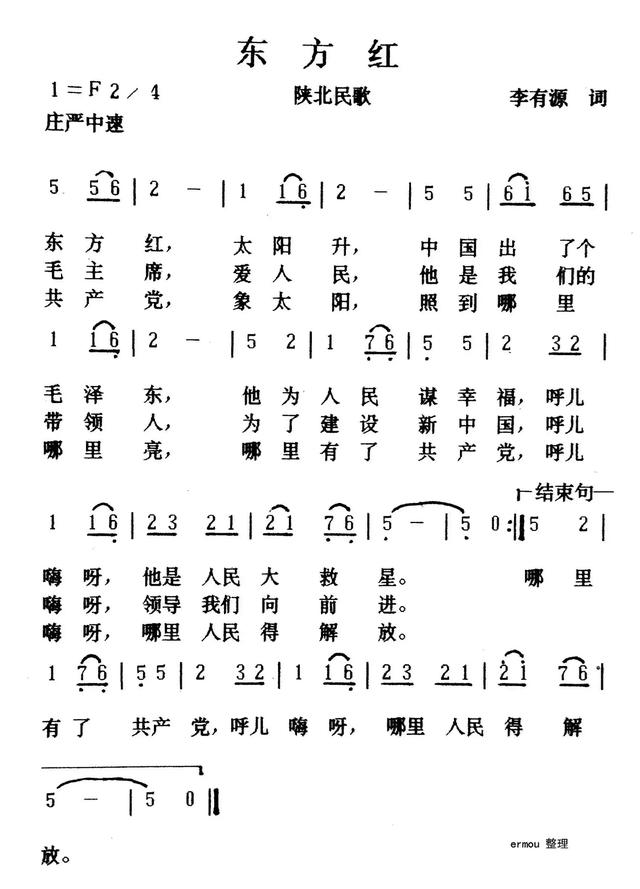 东方红
1=F 2/4 陕北民歌 李有源 词
庄严中速
5 56 | 2 - | 1 16 | 2 - | 5 5 | 61 65 |
东方红， 太阳升， 中国出了个
毛主席， 爱人民， 他是我们的
共产党， 象太阳， 照到哪里
1 16 | 2 - | 5 2 | 1 76 | 5 5 | 2 32 |
毛泽东， 他为人民谋幸福，呼儿
带领人， 为了建设新中国，呼儿
哪里亮， 哪里有了共产党，呼儿
结束句
1 16 | 23 21 | 21 76 | 5 - | 5 0 :‖ 5 2 |
嗨呀，他是人民大救星。 哪里
嗨呀，领导我们向前进。
嗨呀，哪里人民得解放。
1 76 | 55 2 | 32 1 | 23 21 | 21 76 |
有了共产党，呼儿嗨呀，哪里人民得解
5 - | 5 0 ‖
放。
ermou 整理